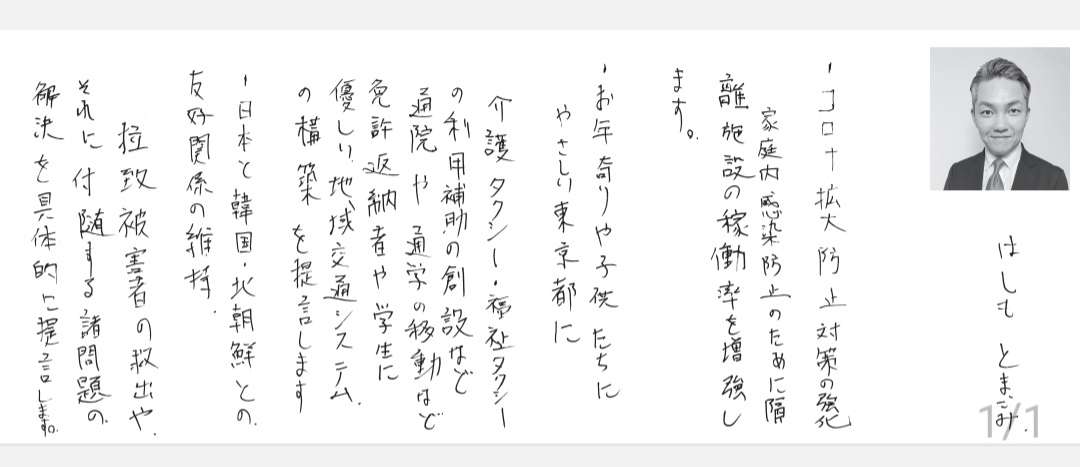 はしもとまさみ.
・コロナ拡大防止対策の強化
家庭内感染防止のために隔
離施設の稼働率を増強し
ます。
・お年寄りや子供たちに
やさしい東京都に
介護タクシー・福祉タクシー
の利用補助の創設など
通院や通学の移動など
免許返納者や学生に
優しい地域交通システム.
の構築を提言します
・日本と韓国・北朝鮮との.
友好関係の維持.
拉致被害者の救出や.
それに付随する諸問題の.
解決を具体的に提言します。
1/1